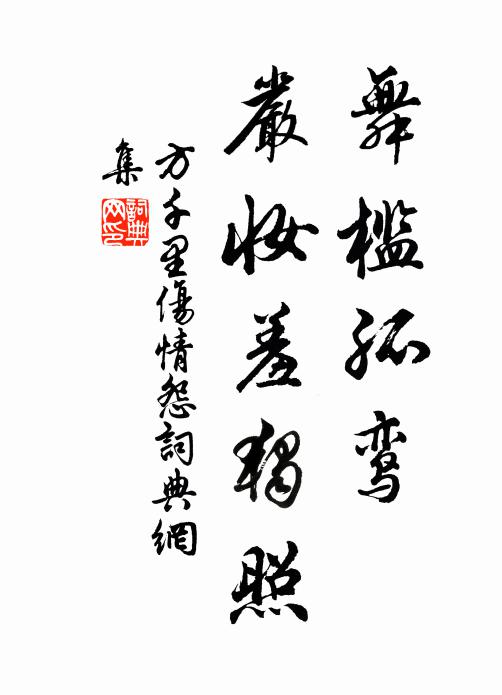 舞槛孤鸾
嚴妆羞獨照
方千里傷情怨詞典網
集
詞典
网印